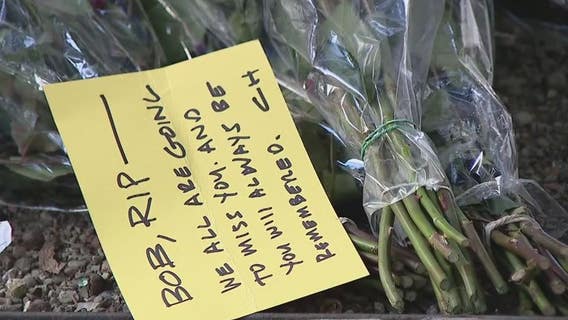 BOB, RIP —
WE ALL ARE GOING
TO MISS YOU. AND
YOU WILL ALWAYS BE
REMEMBERED. CH